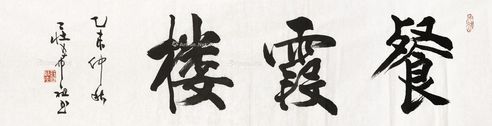 餐霞楼
乙未仲秋